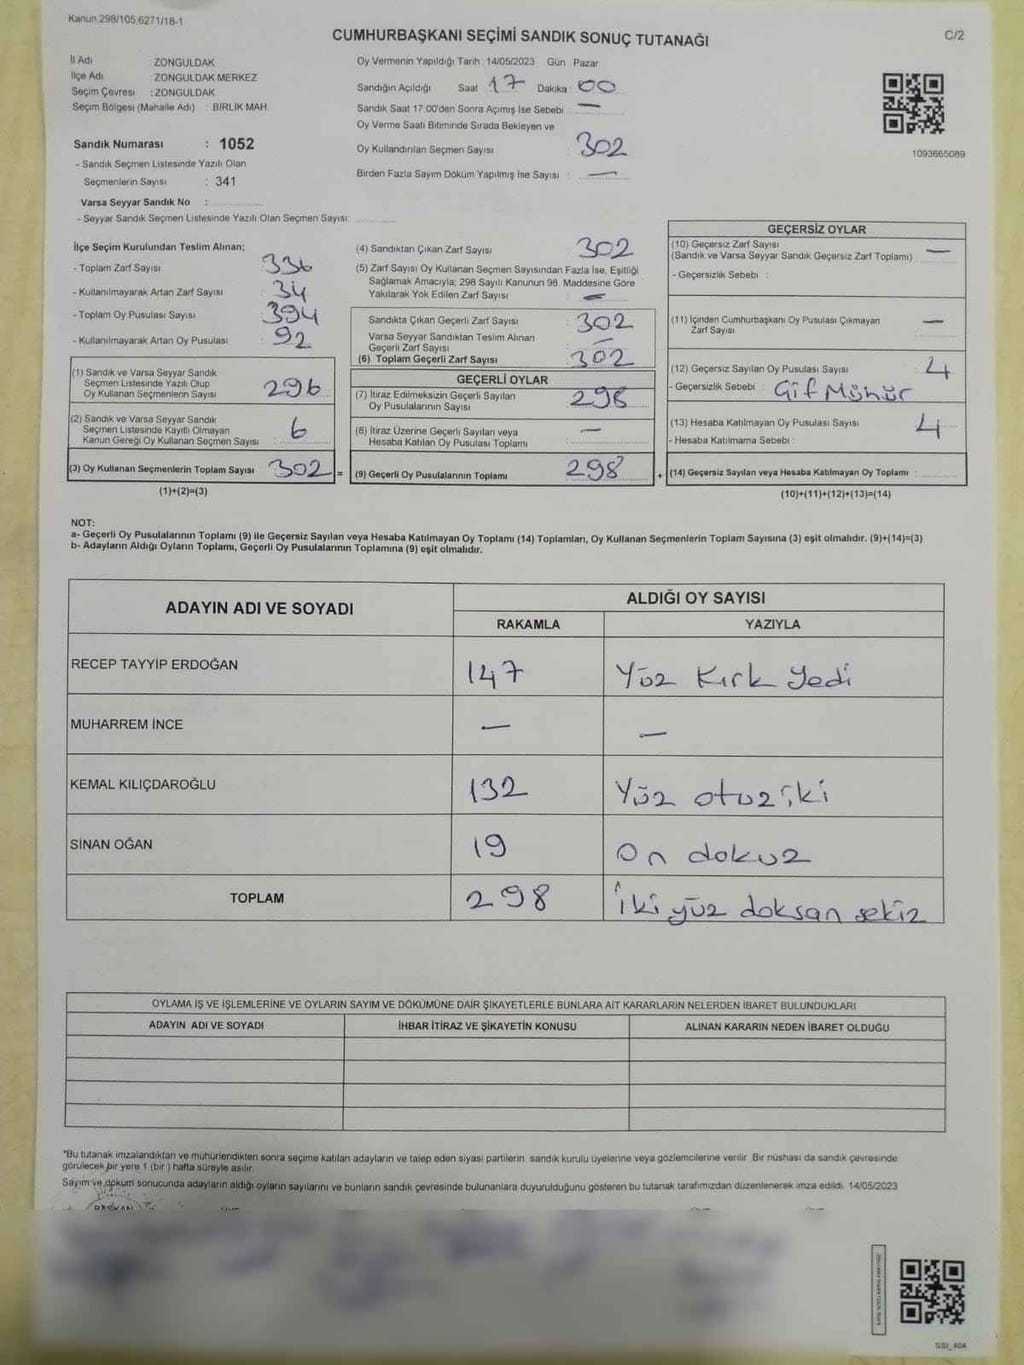 Kanun 298/105,6271/18-1
CUMHURBAŞKANI SEÇİMİ SANDIK SONUÇ TUTANAĞI
C/2
İl Adı : ZONGULDAK
İlçe Adı : ZONGULDAK MERKEZ
Seçim Çevresi : ZONGULDAK
Seçim Bölgesi (Mahalle Adı) : BİRLİK MAH.
Sandık Numarası : 1052
- Sandık Seçmen Listesinde Yazılı Olan
Seçmenlerin Sayısı : 341
Varsa Seyyar Sandık No :
- Seyyar Sandık Seçmen Listesinde Yazılı Olan Seçmen Sayısı:
Oy Vermenin Yapıldığı Tarih : 14/05/2023 Gün : Pazar
Sandığın Açıldığı Saat 17 Dakika : 00
Sandık Saat 17:00'den Sonra Açımış İse Sebebi : —
Oy Verme Saati Bitiminde Sırada Bekleyen ve
Oy Kullandırılan Seçmen Sayısı : 302
Birden Fazla Sayım Döküm Yapılmış İse Sayısı : —
1093665089
İlçe Seçim Kurulundan Teslim Alınan;
- Toplam Zarf Sayısı : 336
- Kullanılmayarak Artan Zarf Sayısı : 34
- Toplam Oy Pusulası Sayısı : 394
- Kullanılmayarak Artan Oy Pusulası : 92
(1) Sandık ve Varsa Seyyar Sandık
Seçmen Listesinde Yazılı Olup
Oy Kullanan Seçmenlerin Sayısı : 296
(2) Sandık ve Varsa Seyyar Sandık
Seçmen Listesinde Kayıtlı Olmayan
Kanun Gereği Oy Kullanan Seçmen Sayısı : 6
(3) Oy Kullanan Seçmenlerin Toplam Sayısı : 302 =
(1)+(2)=(3)
(4) Sandıktan Çıkan Zarf Sayısı : 302
(5) Zarf Sayısı Oy Kullanan Seçmen Sayısından Fazla İse, Eşitliği
Sağlamak Amacıyla; 298 Sayılı Kanunun 98. Maddesine Göre
Yakılarak Yok Edilen Zarf Sayısı : —
Sandıkta Çıkan Geçerli Zarf Sayısı : 302
Varsa Seyyar Sandıktan Teslim Alınan
Geçerli Zarf Sayısı :
(6) Toplam Geçerli Zarf Sayısı : 302
GEÇERLİ OYLAR
(7) İtiraz Edilmeksizin Geçerli Sayılan
Oy Pusulalarının Sayısı : 298
(8) İtiraz Üzerine Geçerli Sayılan veya
Hesaba Katılan Oy Pusulası Toplamı : —
(9) Geçerli Oy Pusulalarının Toplamı : 298 +
GEÇERSİZ OYLAR
(10) Geçersiz Zarf Sayısı
(Sandık ve Varsa Seyyar Sandık Geçersiz Zarf Toplamı) : —
- Geçersizlik Sebebi :
(11) İçinden Cumhurbaşkanı Oy Pusulası Çıkmayan
Zarf Sayısı : —
(12) Geçersiz Sayılan Oy Pusulası Sayısı : 4
- Geçersizlik Sebebi : Gif Mühür
(13) Hesaba Katılmayan Oy Pusulası Sayısı : 4
- Hesaba Katılmama Sebebi :
(14) Geçersiz Sayılan veya Hesaba Katılmayan Oy Toplamı :
(10)+(11)+(12)+(13)=(14)
NOT:
a- Geçerli Oy Pusulalarının Toplamı (9) ile Geçersiz Sayılan veya Hesaba Katılmayan Oy Toplamı (14) Toplamları, Oy Kullanan Seçmenlerin Toplam Sayısına (3) eşit olmalıdır. (9)+(14)=(3)
b- Adayların Aldığı Oyların Toplamı, Geçerli Oy Pusulalarının Toplamına (9) eşit olmalıdır.
ADAYIN ADI VE SOYADI ALDIĞI OY SAYISI
RAKAMLA YAZIYLA
RECEP TAYYİP ERDOĞAN 147 Yüz Kırk Yedi
MUHARREM İNCE — —
KEMAL KILIÇDAROĞLU 132 Yüz otuz iki
SİNAN OĞAN 19 On dokuz
TOPLAM 298 İki yüz doksan sekiz
OYLAMA İŞ VE İŞLEMLERİNE VE OYLARIN SAYIM VE DÖKÜMÜNE DAİR ŞİKAYETLERLE BUNLARA AİT KARARLARIN NELERDEN İBARET BULUNDUKLARI
ADAYIN ADI VE SOYADI İHBAR İTİRAZ VE ŞİKAYETİN KONUSU ALINAN KARARIN NEDEN İBARET OLDUĞU
*Bu tutanak imzalandıktan ve mühürlendikten sonra seçime katılan adayların ve talep eden siyasi partilerin sandık kurulu üyelerine veya gözlemcilerine verilir. Bir nüshası da sandık çevresinde
görülecek bir yere 1 (bir ) hafta süreyle asılır.
Sayım ve döküm sonucunda adayların aldığı oyların sayılarını ve bunların sandık çevresinde bulunanlara duyurulduğunu gösteren bu tutanak tarafımızdan düzenlenerek imza edildi. 14/05/2023
BAŞKAN
SSI_404